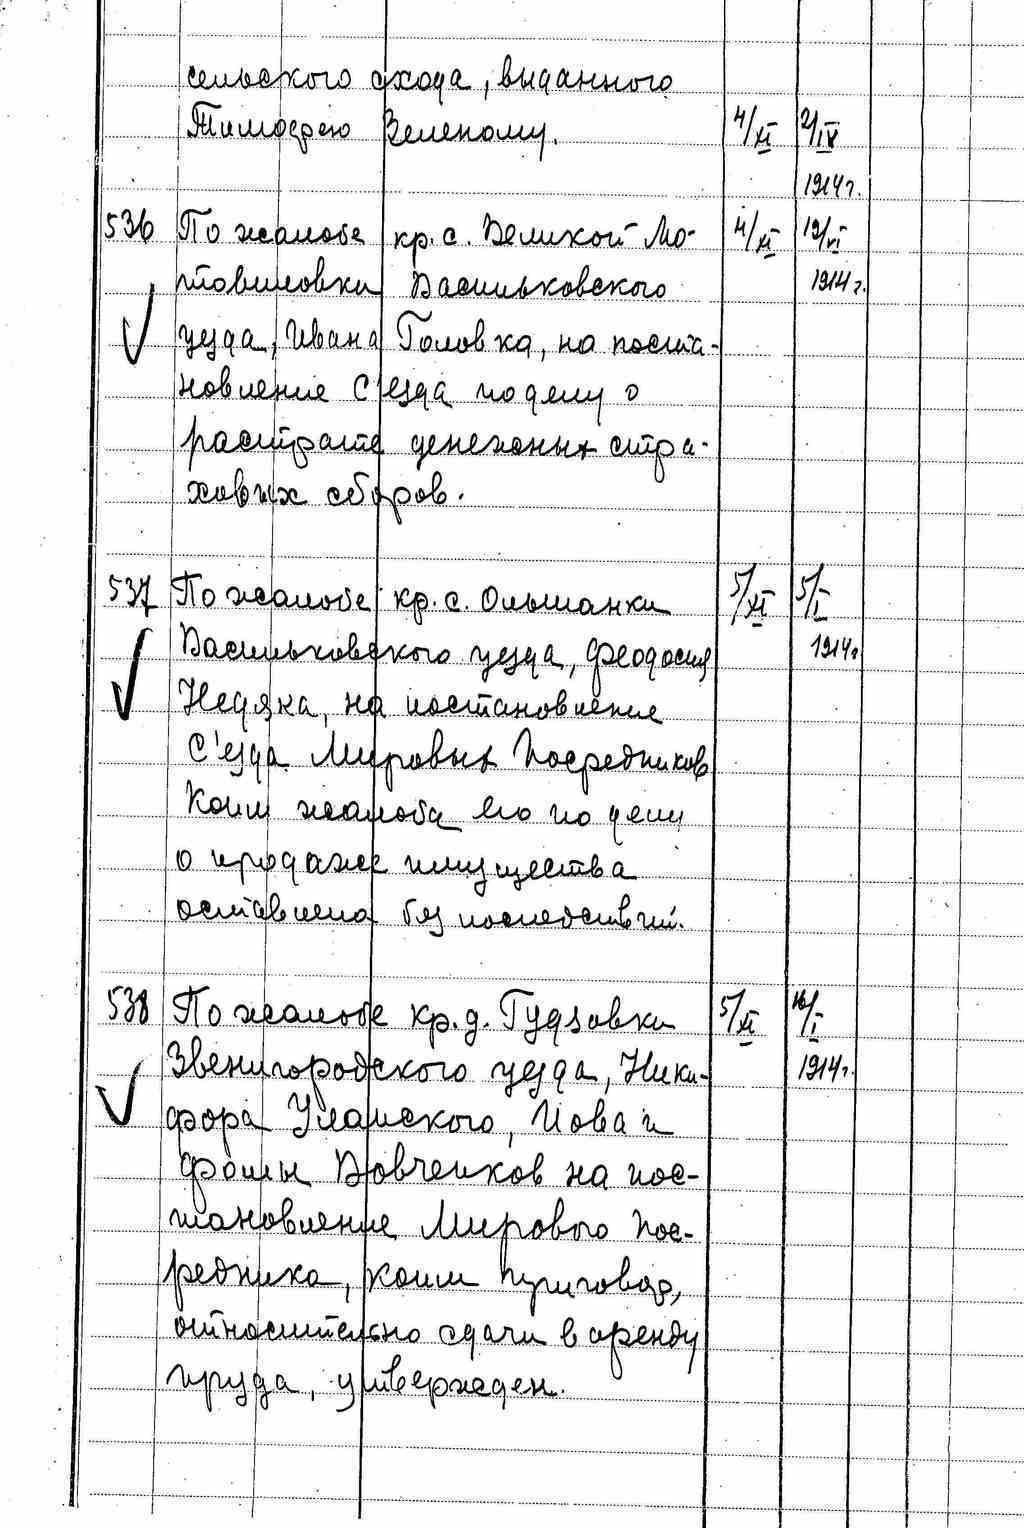 сельского схода, выданного
Тимофею Зеленому. 4/XI 2/IV
1914 г.
536 По жалобе кр. с. Великой Мо- 4/XI 19/VI
товиловки Васильковского 1914 г.
уезда, Ивана Головка, на поста-
новление С'езда по делу о
растрате денежных стра-
ховых сборов.
537 По жалобе кр. с. Ольшанки 5/XI 5/I
Васильковского уезда, Феодосия 1914 г
Недяка, на постановление
С'езда Мировых Посредников
Коим жалоба его по делу
о продаже имущества
оставлена без последствий.
538 По жалобе кр. д. Гудзовки 5/XI 16/I
Звенигородского уезда, Ники- 1914 г.
фора Уманского, Иова и
Фомы Вовченков на пос-
тановление Мирового Пос-
редника, коим приговор,
относительно сдачи в аренду
пруда, утвержден.